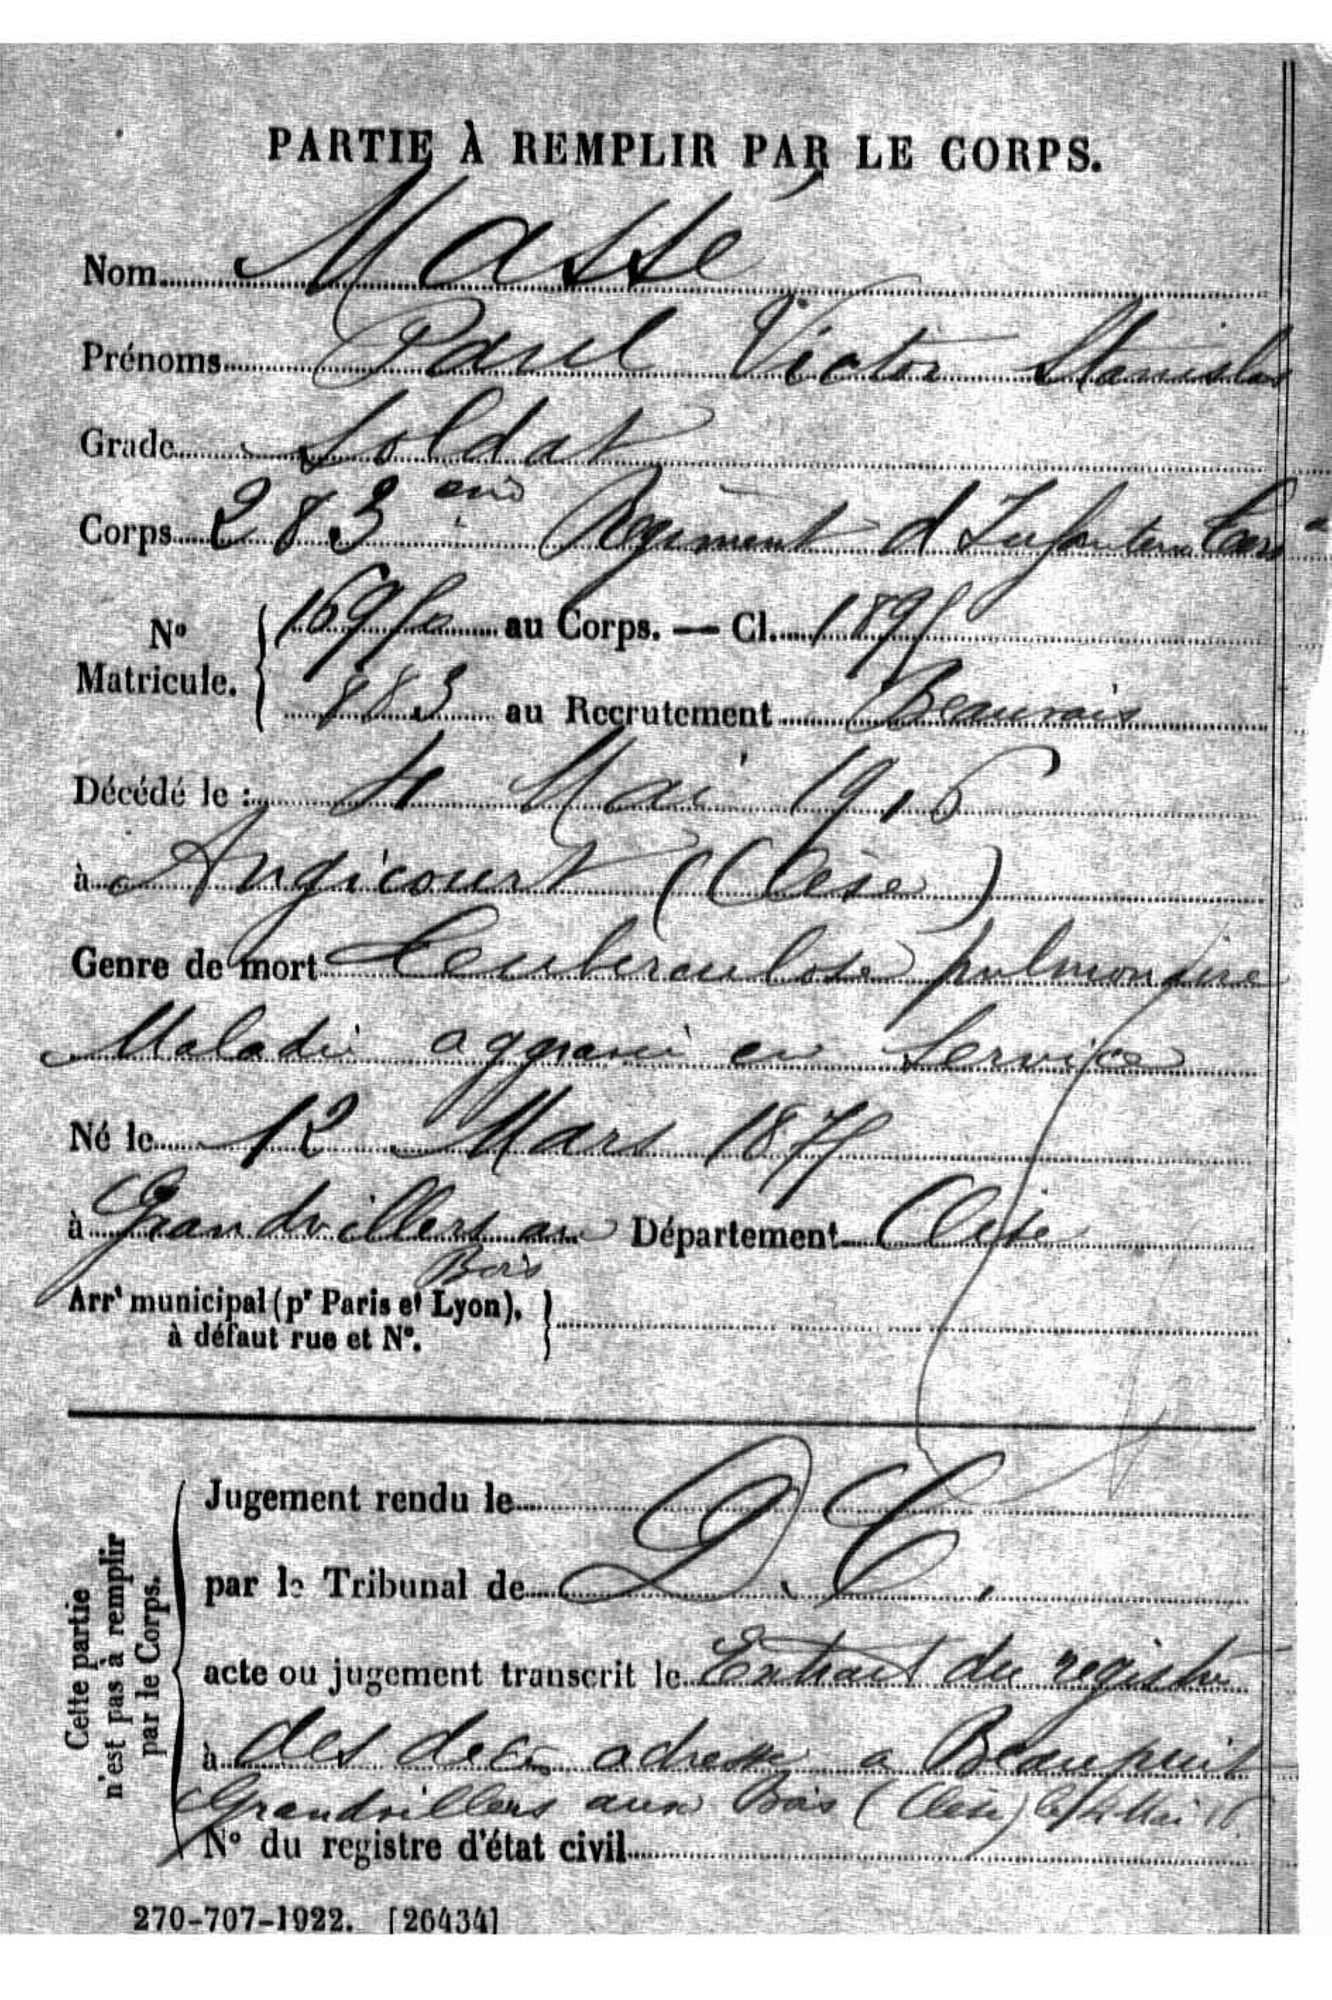 PARTIE À REMPLIR PAR LE CORPS.
Nom Massé
Prénoms Paul Victor Stanislas
Grade Soldat
Corps 283 eme Régiment d'Infanterie
N° Matricule. au Corps. — Cl. 189
883 au Recrutement Beauvais
Décédé le : 4 Mai 1916
à Angicourt (Oise)
Genre de mort Teuberculose pulmonaire
Maladie aggravée en Service
Né le 12 Mars 187
à Grandvillers au Département Oise
Bois
Arrt municipal (pr Paris et Lyon),
à défaut rue et N°.
Cette partie
n'est pas à remplir
par le Corps.
Jugement rendu le
par le Tribunal de D.C.
acte ou jugement transcrit le Extrait du registre
à des decès adressé a Beaupuit
Grandvillers aux Bois (Oise) le Mai 16
N° du registre d'état civil
270-707-1922. [26434]